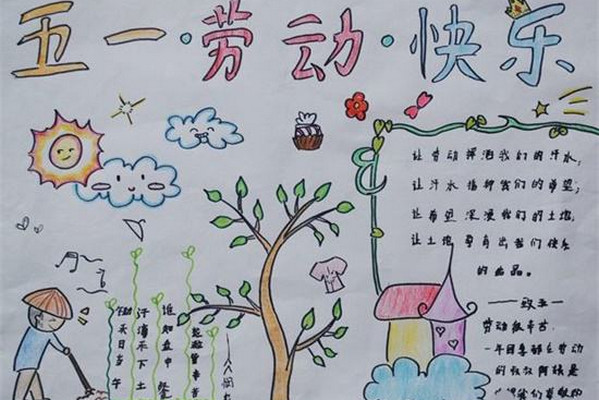 五一·劳动·快乐
让劳动挥洒我们的汗水,
让汗水播种我们的希望;
让希望深浸我们的土地,
让土地孕育出我们快乐
的 品。
——致五一
劳动最辛苦
一年四季都在劳动
的叔叔阿姨是
我们尊敬的
锄禾日当午
汗滴禾下土
谁知盘中餐
粒粒皆辛苦